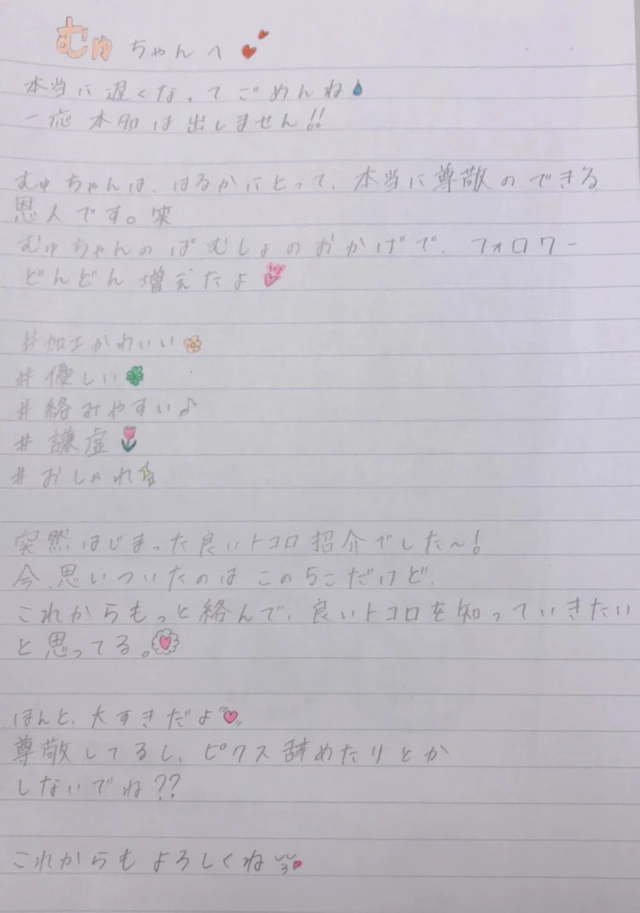 むゅちゃんへ
本当に遅くなってごめんね
一応本命は出しません!!
むゅちゃんは、はるかにとって、本当に尊敬のできる
恩人です。笑
むゅちゃんのばむしょのおかげで、フォロワー
どんどん増えたよ
#加工かわいい
#優しい
#絡みやすい♪
#謙虚
#おしゃれ
突然はじまった良いトコロ紹介でした〜!
今、思いついたのはこの5こだけど、
これからもっと絡んで、良いトコロを知っていきたい
と思ってる。
ほんと、大すきだよ
尊敬してるし、ピクス辞めたりとか
しないでね??
これからもよろしくね